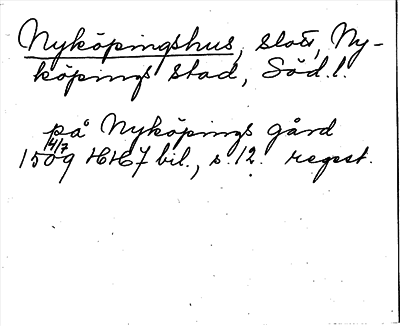 Nyköpingshus, slott, Ny-
köpings stad, Söd.l.
på Nyköpings gård
1509 14/7 HH 7 bil., s. 12. regest.